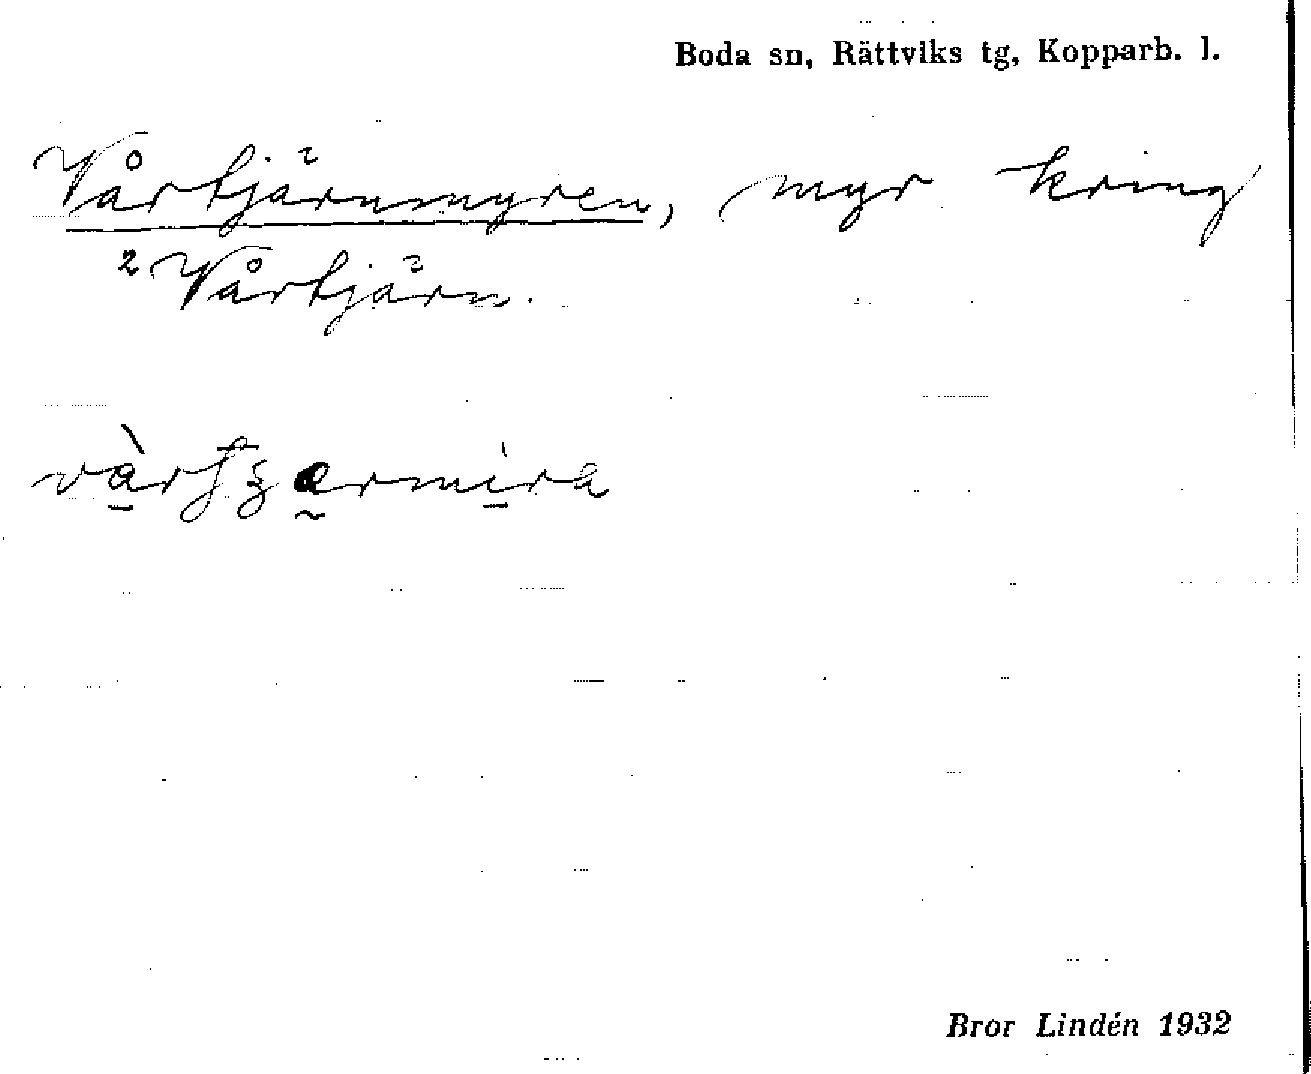 Boda sn, Rättviks tg, Kopparb. l.
Vårtjärnmyren, myr kring
2 Vårtjärn.
Bror Lindén 1932